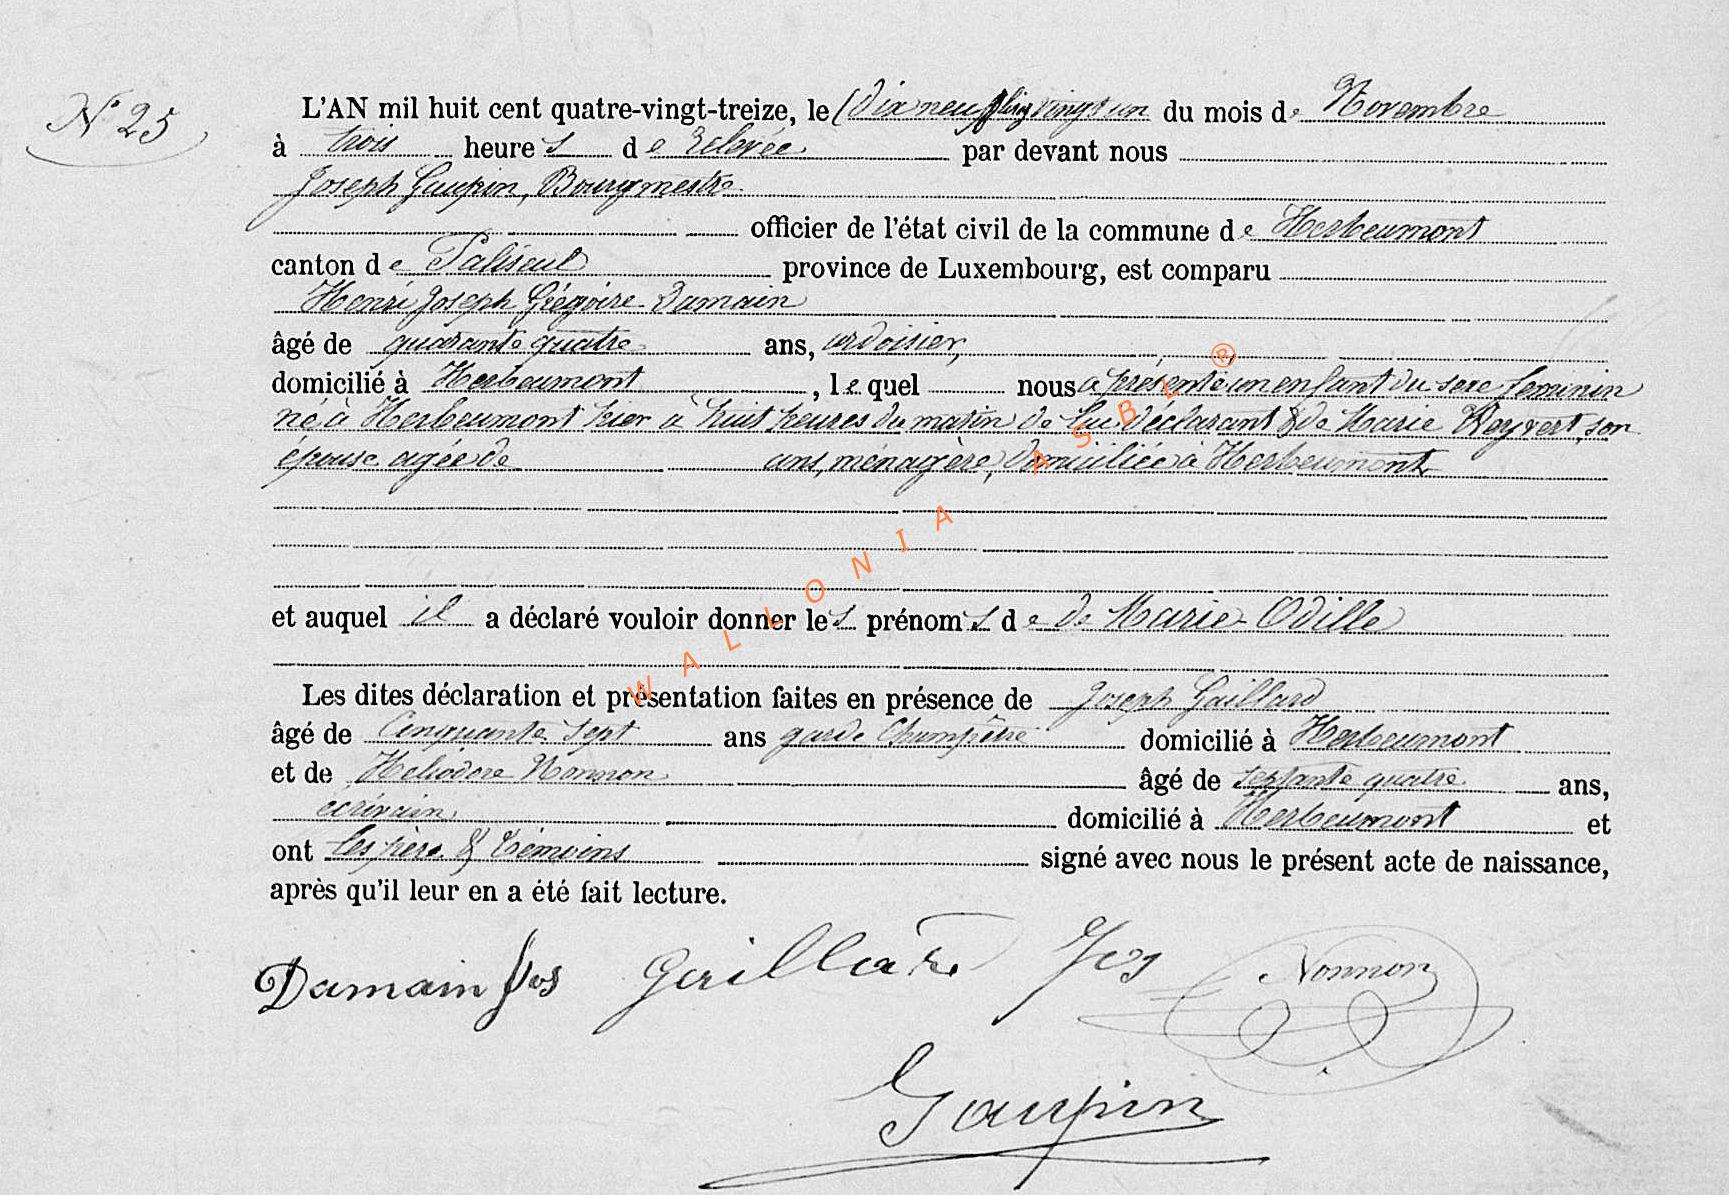 N° 25
L'AN mil huit cent quatre-vingt-treize, le (Dix neuf) vingt un du mois de Novembre
à trois heures de relevée par devant nous
Joseph Gaupin, Bourgmestre
officier de l'état civil de la commune de Herbeumont
canton de Paliseul province de Luxembourg, est comparu
Henri Joseph Grégoire Damain
âgé de quarante quatre ans, ardoisier,
domicilié à Herbeumont, lequel nous a présenté un enfant du sexe feminin
né à Herbeumont hier à huit heures du matin de lui déclarant & de Marie son
épouse agée de ans, ménagère, domiciliée à Herbeumont
et auquel il a déclaré vouloir donner les prénoms de de Marie-Odille
Les dites déclaration et présentation faites en présence de Joseph Gaillard
âgé de Cinquante sept ans garde Champêtre domicilié à Herbeumont
et de Héliodore Nonnon âgé de septante quatre ans,
écrivain, domicilié à Herbeumont et
ont les père & témoins signé avec nous le présent acte de naissance,
après qu'il leur en a été fait lecture.
Damain Jos Gaillard Jos Nonnon
Gaupin
WALLONIA ASBL ®